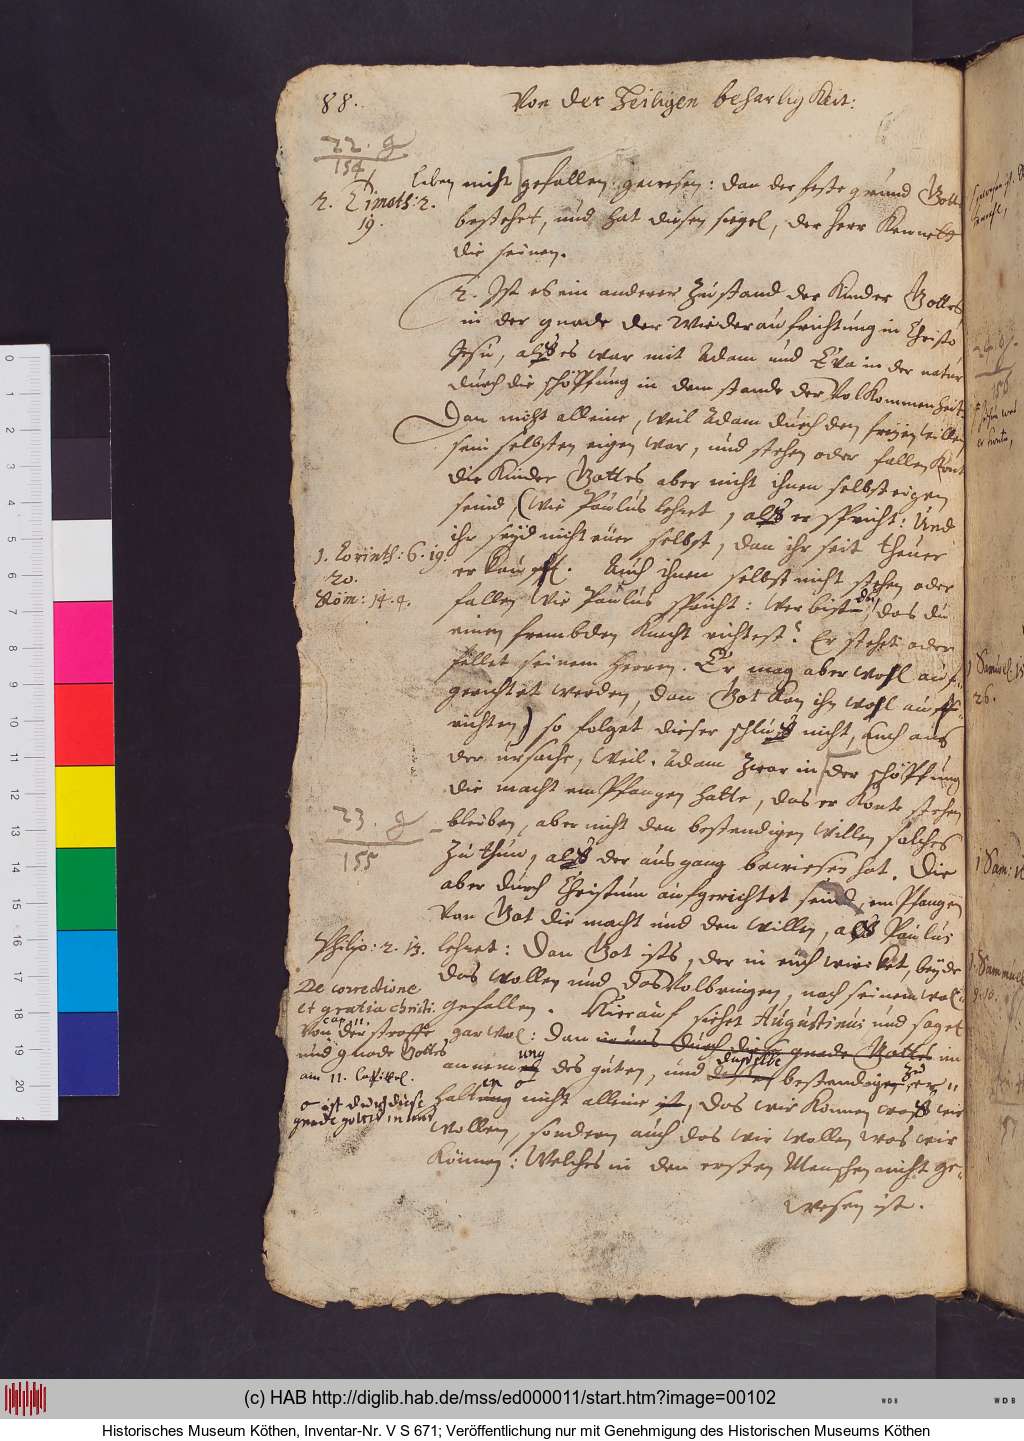 88.
Von der Heiligen beharligKeit:
22. g
154
leben nicht gefallen gewesen: dan der feste grund Gottes
2. Timoth: 2.
19.
bestehet, und hat diesen siegel, der Herr Kennet
die seinen.
2. Ist es ein anderer Zustand der Kinder Gottes
in der gnade der wiederaufrichtung in Christo
Jesu, alß es war mit Adam und Eva in der natur
durch die schöpffung in dem stande der VolKommenheit
Dan nicht alleine, weil Adam durch den freyen willen
sein selbsten eigen war, und stehen oder fallen Kont
die Kinder Gottes aber nicht ihnen selbst eigen
seind, (wie Paulus lehret, alß er spricht: Und
ihr seyd nicht eüer selbst, dan ihr seit theuer
1. Corinth: 6. 19.
20.
erKaufft. Auch ihnen selbst nicht stehen oder
Röm: 14. 4.
fallen wie Paulus spricht: wer bistu, das du
einen frembden Knecht richtest? Er stehet oder
fellet seinem Herren. Er mag aber wohl auf-
gerichtet werden, dan Got Kan ihn wohl auff-
richten) so folget dieser schluß nicht, auch aus
der ursache, weil Adam zwar in der schöpffung
die macht empfangen hatte, das er Konte stehen
23. g
155
bleiben, aber nicht den bestendigen willen solches
zu thun, alß der ausgang bewiesen hat. Die
aber durch Christum aufgerichtet seind, empfangen
von Got die macht und den willen, als Paulus
Philip: 2. 13.
lehret: Dan Got ists, der in euch wircket, beyde
das wollen und das Volbringen, nach seinem wol-
De correctione
et gratia christi.
cap. 11.
gefallen. Hierauf siehet Augustinus und saget
Von der straffe
und gnade Gottes
am 11. Capittel.
gar wol: dan in uns durch diese gnade Gottes im
annemung des guten, und dasselbe bestendiger zu er-
o ist durch diese
gnade gottes in uns
haltung nicht alleine ist, das wir Können was wir
wollen, sondern auch das wir wollen was wir
Können: Welches in dem ersten Menschen nicht ge-
wesen ist.
1 Samuel: 15
26.
1 Sam: 1
1. Sammuel
9. 16.
(c) HAB http://diglib.hab.de/mss/ed000011/start.htm?image=00102
WDB
WDB
Historisches Museum Köthen, Inventar-Nr. V S 671; Veröffentlichung nur mit Genehmigung des Historischen Museums Köthen